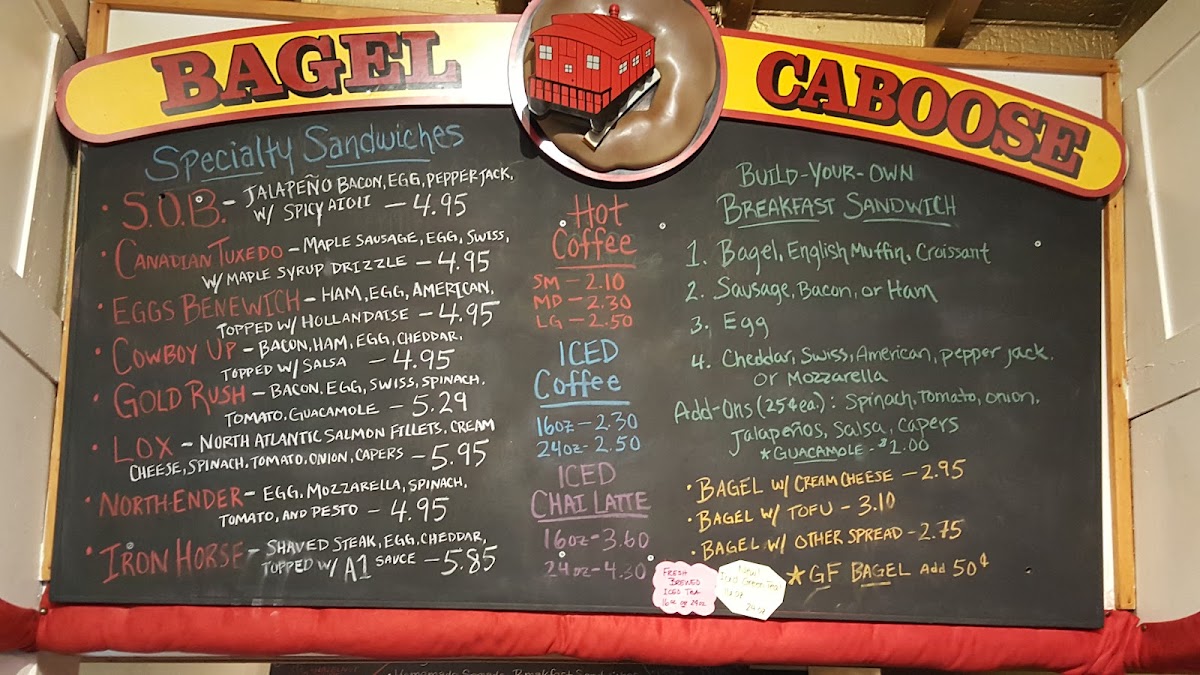 BAGEL CABOOSE
Specialty Sandwiches
• S.O.B. - JALAPEÑO BACON, EGG, PEPPERJACK,
W/ SPICY AIOLI - 4.95
• CANADIAN TUXEDO - MAPLE SAUSAGE, EGG, SWISS,
W/ MAPLE SYRUP DRIZZLE - 4.95
• EGGS BENEWICH - HAM, EGG, AMERICAN,
TOPPED W/ HOLLANDAISE - 4.95
• COWBOY UP - BACON, HAM, EGG, CHEDDAR,
TOPPED W/ SALSA - 4.95
• GOLD RUSH - BACON, EGG, SWISS, SPINACH,
TOMATO, GUACAMOLE - 5.29
• LOX - NORTH ATLANTIC SALMON FILLETS, CREAM
CHEESE, SPINACH, TOMATO, ONION, CAPERS - 5.95
• NORTH-ENDER - EGG, MOZZARELLA, SPINACH,
TOMATO, AND PESTO - 4.95
• IRON HORSE - SHAVED STEAK, EGG, CHEDDAR,
TOPPED W/ A1 SAUCE - 5.85
Hot
Coffee
SM - 2.10
MD - 2.30
LG - 2.50
ICED
Coffee
16oz - 2.30
24oz - 2.50
ICED
CHAI LATTE
16oz - 3.60
24oz - 4.30
BUILD-YOUR-OWN
BREAKFAST SANDWICH
1. Bagel, English Muffin, Croissant
2. Sausage, Bacon, or Ham
3. Egg
4. Cheddar, Swiss, American, pepper jack.
or Mozzarella
Add-Ons (25¢ea.): Spinach, Tomato, onion,
Jalapeños, Salsa, Capers
*GUACAMOLE - $1.00
• BAGEL W/ CREAM CHEESE - 2.95
• BAGEL W/ TOFU - 3.10
• BAGEL W/ OTHER SPREAD - 2.75
*GF BAGEL Add 50¢
FRESH
BREWED
ICED TEA
16oz or 24oz
New!
Iced Green Tea
24oz
Homemade Breakfast Sandwiches